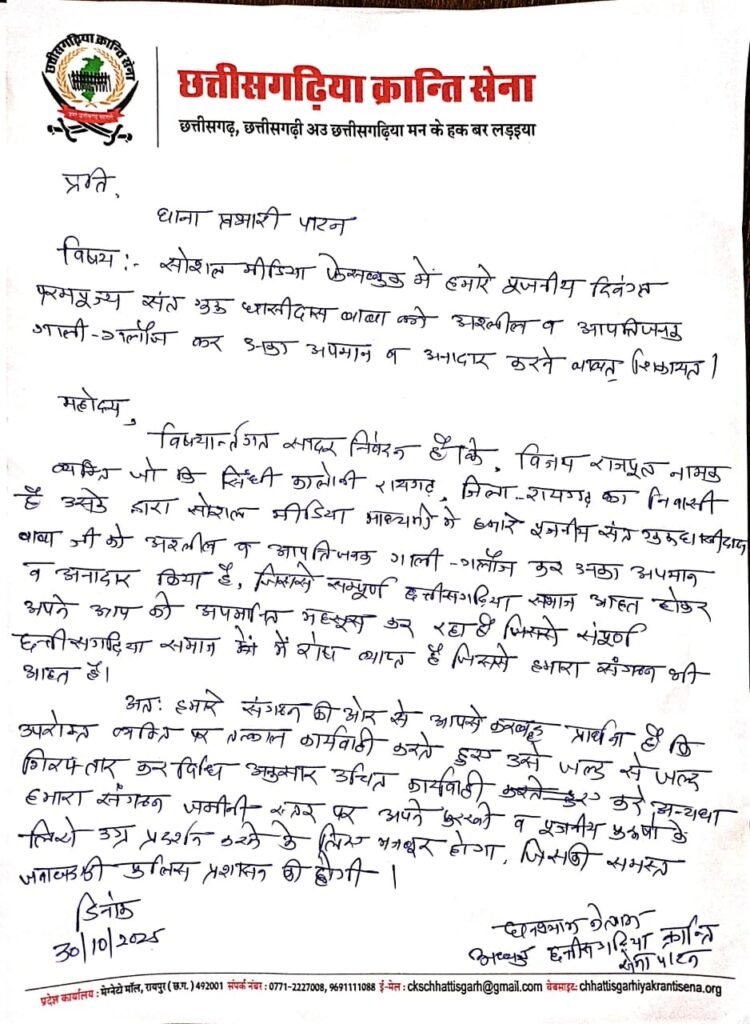 छत्तीसगढ़िया क्रान्ति सेना
छत्तीसगढ़िया क्रान्ति सेना
छत्तीसगढ़, छत्तीसगढ़ी अउ छत्तीसगढ़िया मन के हक बर लड़इया
प्रति,
थाना प्रभारी पाटन
विषय:- सोशल मीडिया फेसबुक में हमारे पूजनीय दिवंगत
परमपूज्य संत गुरु घासीदास बाबा को अश्लील व आपत्तिजनक
गाली-गलौज कर उनका अपमान व अनादार करने बाबत् शिकायत।
महोदय,
विषयार्न्तगत सादर निवेदन है कि, विजय राजपूत नामक
व्यक्ति जो कि सिंधी कालोनी रायगढ़, जिला-रायगढ़ का निवासी
है उसके द्वारा सोशल मीडिया माध्यमों में हमारे पूजनीय संत गुरु घासीदास
बाबा जी को अश्लील व आपत्तिजनक गाली-गलौज कर उनका अपमान
व अनादार किया है, जिससे सम्पूर्ण छत्तीसगढ़िया समाज आहत होकर
अपने आप को अपमानित महसूस कर रहा है जिससे संपूर्ण
छत्तीसगढ़िया समाज में रोष व्याप्त है जिससे हमारा संगठन भी
आहत है।
अतः हमारे संगठन की ओर से आपसे करबद्ध प्रार्थना है कि
उपरोक्त व्यक्ति पर तत्काल कार्यवाही करते हुए उसे जल्द से जल्द
गिरफ्तार कर विधि अनुसार उचित कार्यवाही करते हुए करें अन्यथा
हमारा संगठन जमीनी स्तर पर अपने पुरखों व पूजनीय पुरुषों के
लिये उग्र प्रदर्शन करने के लिए मजबूर होगा, जिसकी समस्त
जवाबदेही पुलिस प्रशासन की होगी।
दिनांक
30/10/2025
अध्यक्ष छत्तीसगढ़िया क्रान्ति
सेना पाटन
प्रदेश कार्यालय : मेग्नेटो मॉल, रायपुर (छ.ग.) 492001 संपर्क नंबर : 0771-2227008, 9691111088 ई-मेल : ckschhattisgarh@gmail.com वेबसाइट: chhattisgarhiyakrantisena.org